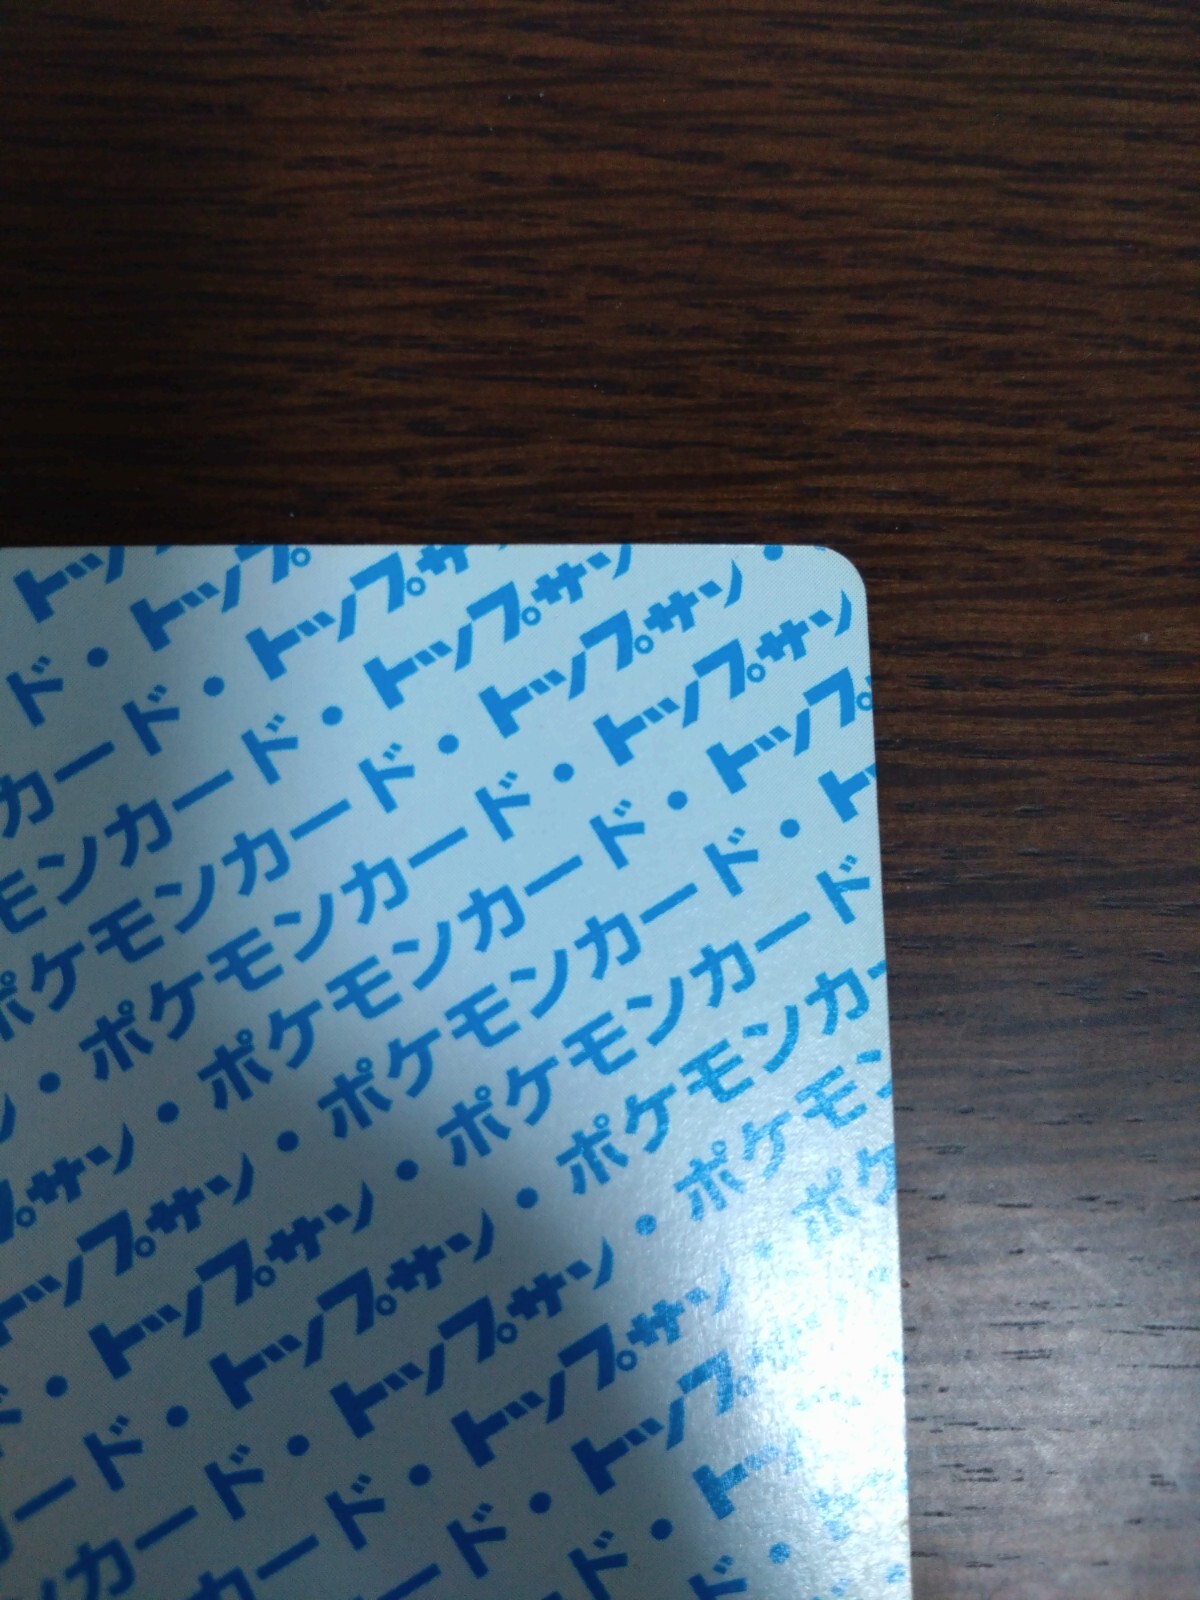 トッ
ド・トップ
カード・トップサ
モンカード・トップサン
ポケモンカード・トップサン・
ン・ポケモンカード・トップサン
プサン・ポケモンカード・トップ
トップサン・ポケモンカード・ト
ド・トップサン・ポケモンカード
カード・トップサン・ポケモンカー
ンカード・トップサン・ポケモン
カード・トップサン・ポケ
ード・トップ
ド・ト
ド・